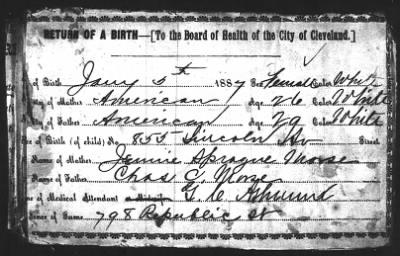 RETURN OF A BIRTH—[To the Board of Health of the City of Cleveland.]
of Birth Jany 5th 1887 Sex Female Color White
of Mother American Age 26 Color White
of Father American Age 29 Color White
of Birth (of child) No 855 Lincoln Av Street
Name of Mother Jennie Sprague Morse
Name of Father Chas C. Morse
of Medical Attendant G. C. Ashmund
of Same 798 Republic St